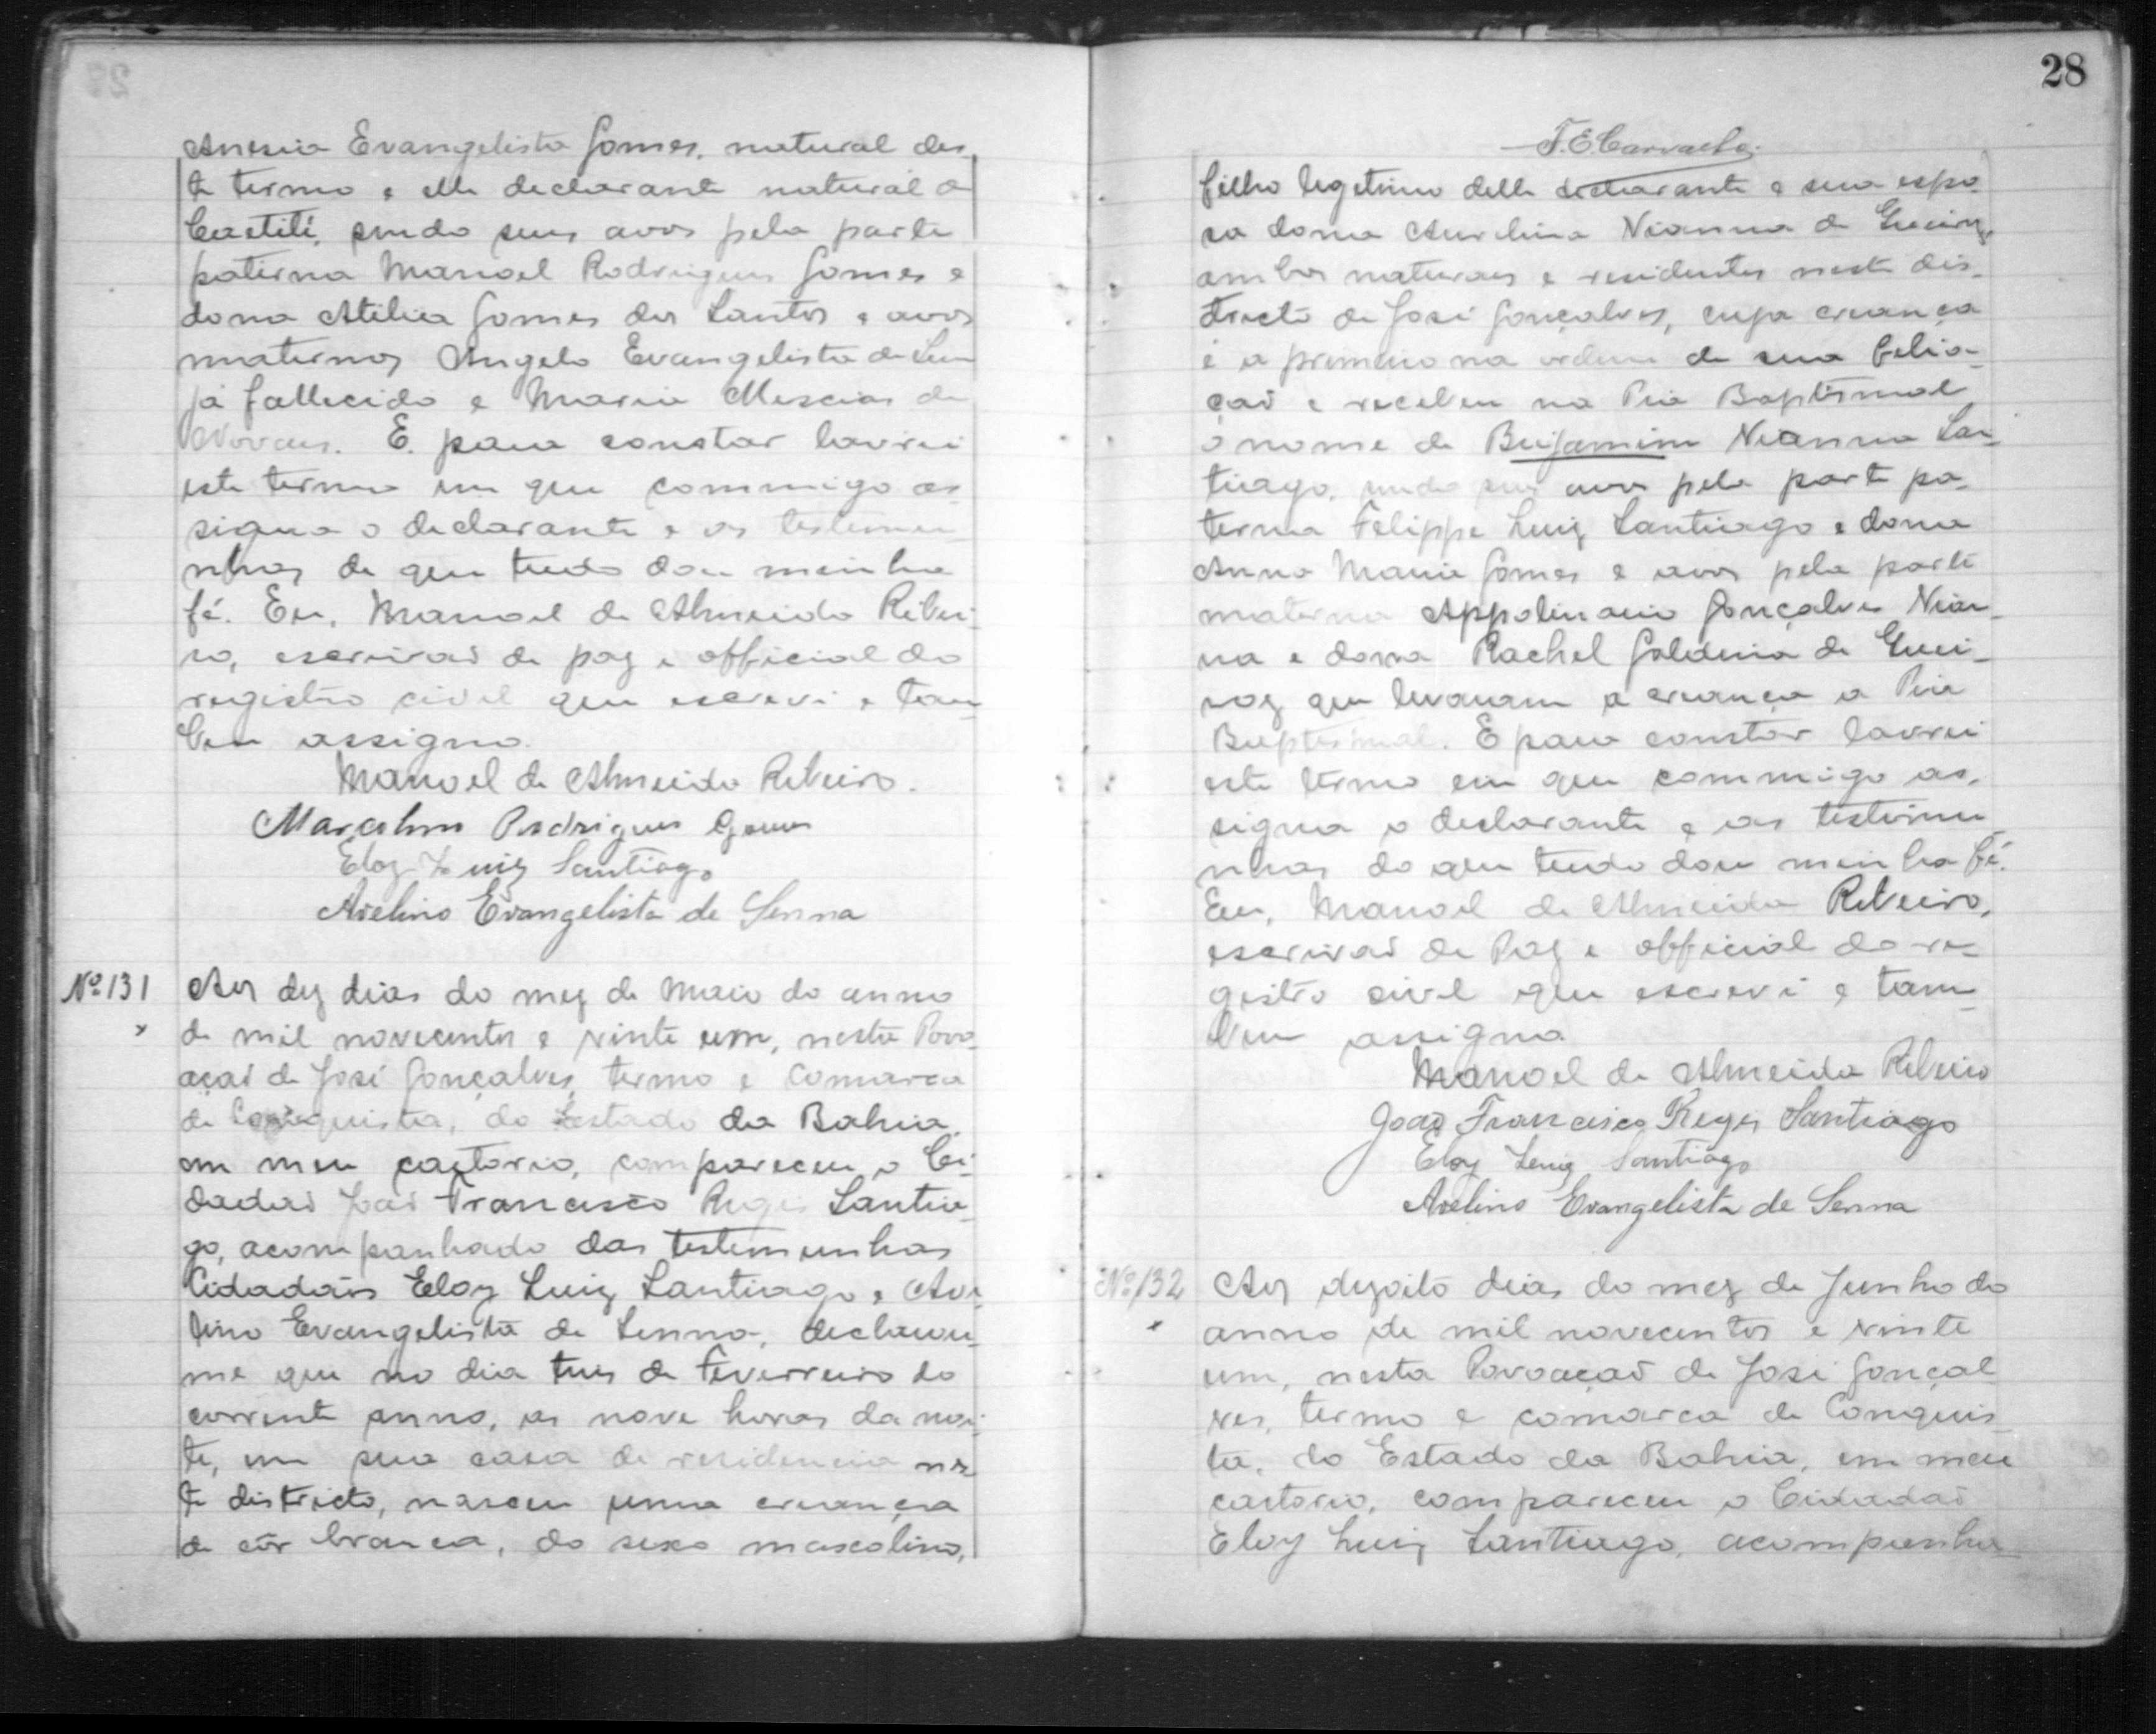 Anesia Evangelista Gomes, natural des-
te termo e elle declarante natural de
Caetité, sendo seus avos pela parte
paterna Manoel Rodrigues Gomes e
dona Atilia Gomes dos Santos e avos
maternos Angelo Evangelista de
já fallecido e Maria Messias de
Novaes. E para constar lavrei
este termo em que commigo as-
signa o declarante e as testemu-
nhas de que tudo dou minha
fé. Eu, Manoel de Almeida Ribei-
ro, escrivaõ de paz e official do
registro civil que escrevi e tam-
bem assigno.
Manoel de Almeida Ribeiro.
Marcolino Rodrigues Gomes
Eloy Luiz Santiago
Avelino Evangelista de Senna
Nº 131
Aos dez dias do mez de Maio do anno
de mil novecentos e vinte um, nesta Povo-
açaõ de José Gonçalves, termo e Comarca
de Conquista, do Estado da Bahia,
em meu cartorio, compareceu o Ci-
dadaõ Joaõ Francisco Regis Santia-
go, acompanhado das testemunhas
Cidadaõs Eloy Luiz Santiago e Ave-
lino Evangelista de Senna, declarou-
me que no dia tres de Fevereiro do
corrente anno, as nove horas da noi-
te, em sua casa de residencia nes-
te districto, nasceu uma creança
de côr branca, do sexo mascolino,
28
F. E. Carvalho
filho legetimo delle declarante e sua espo-
sa dona Aurelina Vianna de Queiroz,
ambos naturaes e residentes neste dis-
tricto de José Gonçalves, cuja creança
é a primeiro na ordem de sua felia-
çaõ e recebeu na Pia Baptismal
o nome de Beijamim Vianna San-
tiago, sendo seus avos pela parte pa-
terna Felippe Luiz Santiago e dona
Anna Maria Gomes e avos pela parte
materna Appolinario Gonçalves Vian-
na e dona Rachel Galdina de Quei-
roz que levaram a creança a Pia
Baptismal. E para constar lavrei
este termo em que commigo as-
signa o declarante e as testemu-
nhas do que tudo dou minha fé.
Eu, Manoel de Almeida Ribeiro,
escrivaõ de Paz e official do re-
gistro sivil que escrevi e tam-
bem assigno
Manoel de Almeida Ribeiro
Joaõ Francisco Regis Santiago
Eloy Luiz Santiago
Avelino Evangelista de Senna
Nº 132
Aos dezoito dias do mez de Junho do
anno de mil novecentos e vinte
um, nesta Povoaçaõ de José Gonçal-
ves, termo e comarca de Conquis-
ta, do Estado da Bahia, em meu
cartorio, compareceu o Cidadaõ
Eloy Luiz Santiago, acompanha-